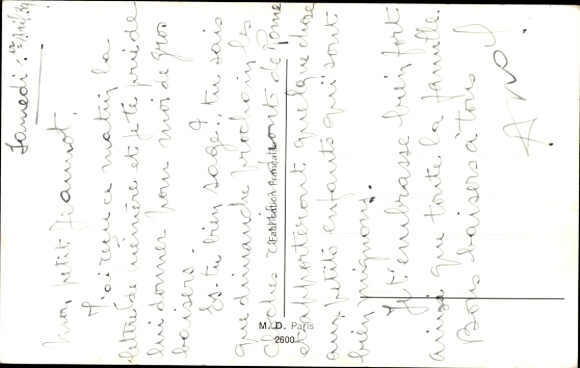 Samedi 1er Avril 39
Mon petit Jeannot,
J'ai reçu ce matin la
lettre de mémère et je te prie de
lui donner pour moi de gros
baisers.
Es-tu bien sage ? tu sais
que dimanche prochain les
cloches reviendront de Rome
et apporteront quelque chose
aux petits enfants qui sont
bien mignons.
Je t'embrasse bien fort
ainsi que toute la famille.
Bons baisers à tous
Fabrication Française
M. D. Paris
2600